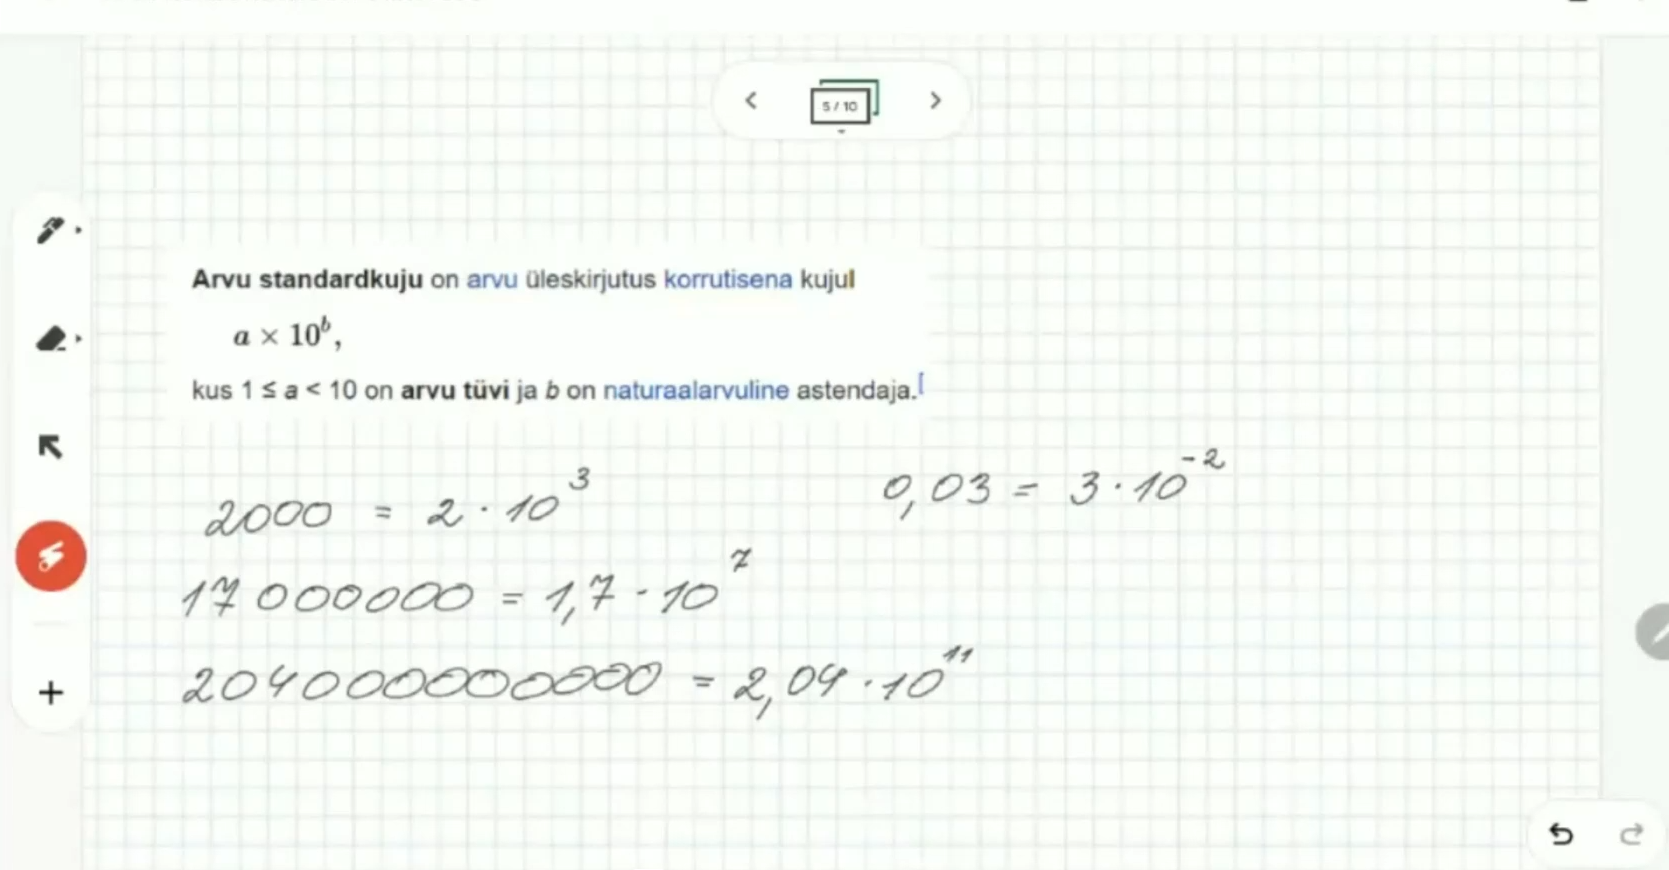 5 / 10
Arvu standardkuju on arvu üleskirjutus korrutisena kujul
a × 10ᵇ,
kus 1 ≤ a < 10 on arvu tüvi ja b on naturaalarvuline astendaja.[
2000 = 2 · 10³
0,03 = 3 · 10⁻²
17 000000 = 1,7 · 10⁷
204000000000 = 2,04 · 10¹¹